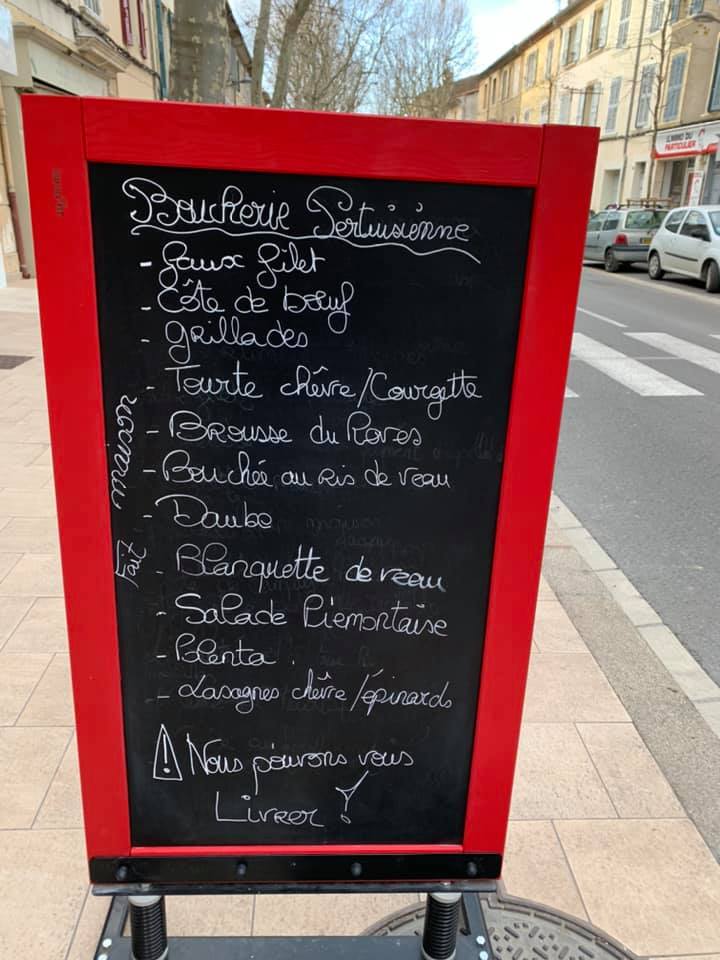 Boucherie Pertuisienne
- faux filet
- Côte de bœuf
- grillades
- Tourte chèvre/Courgette
- Brousse du Roves
- Bouchée au Ris de veau
- Daube
- Blanquette de veau
- Salade Piemontaise
- Polenta.
- Lasagnes chèvre/épinards
Fait maison
⚠ Nous pouvons vous
Livrer !
L'IMMO DU
PARTICULIER